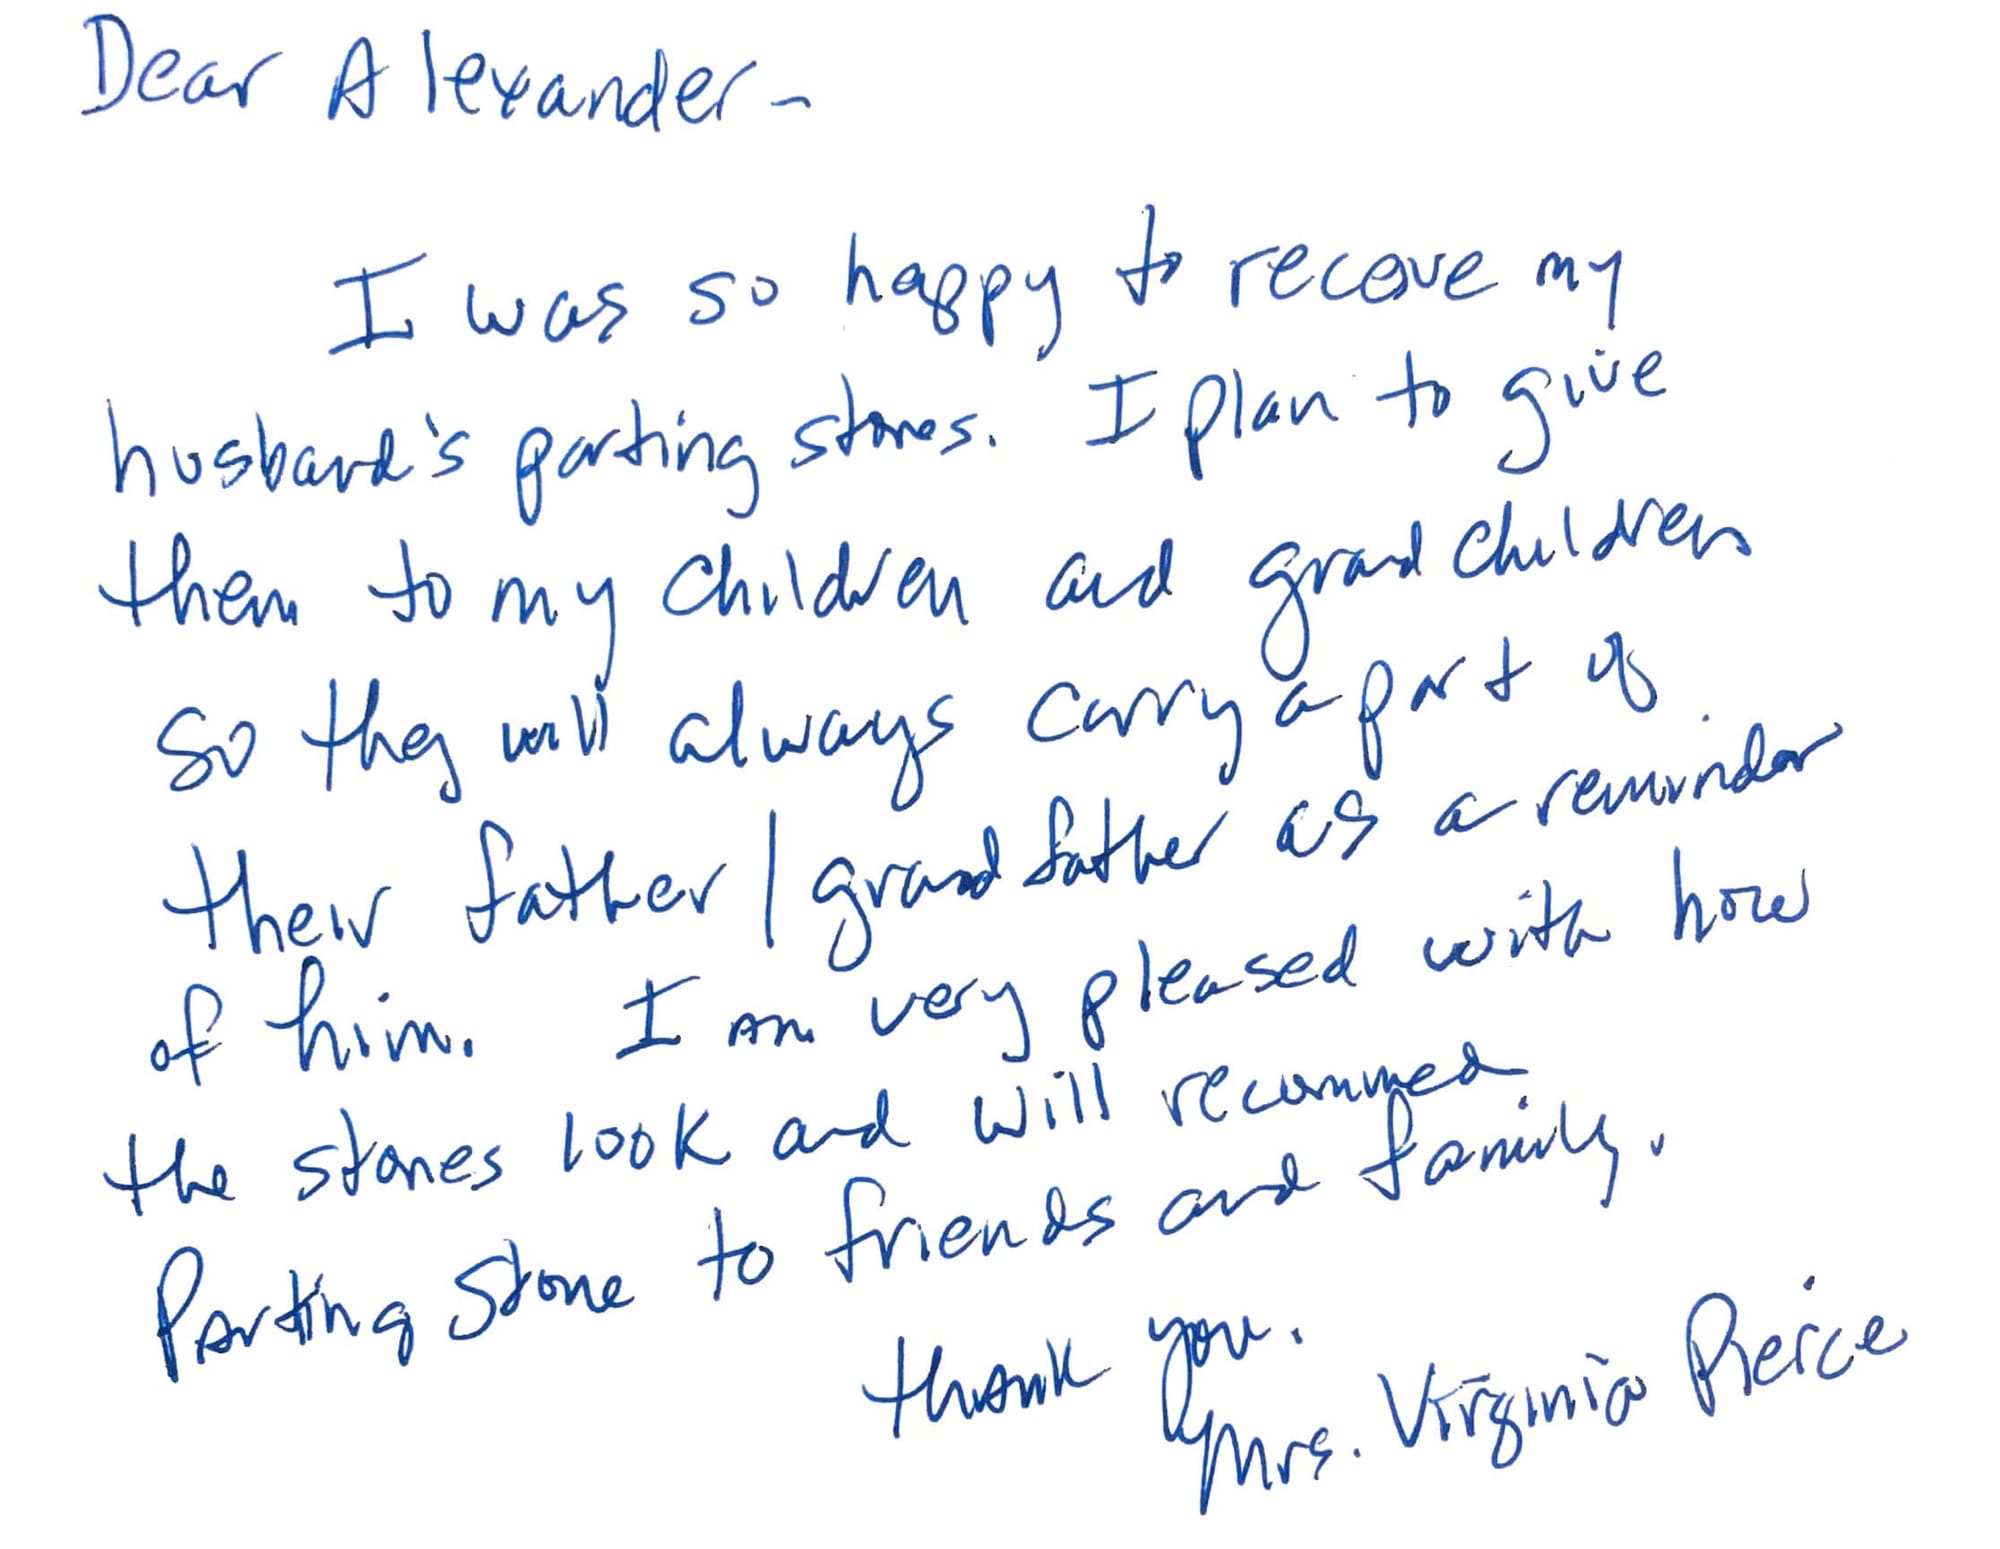 Dear Alexander -
I was so happy to receve my
husband's parting stones. I plan to give
them to my children and grandchildren
so they will always carry a part of
their father / grandfather as a reminder
of him. I am very pleased with how
the stones look and will recommed
Parting Stone to friends and family.
thank you.
Mrs. Virginia Pierce